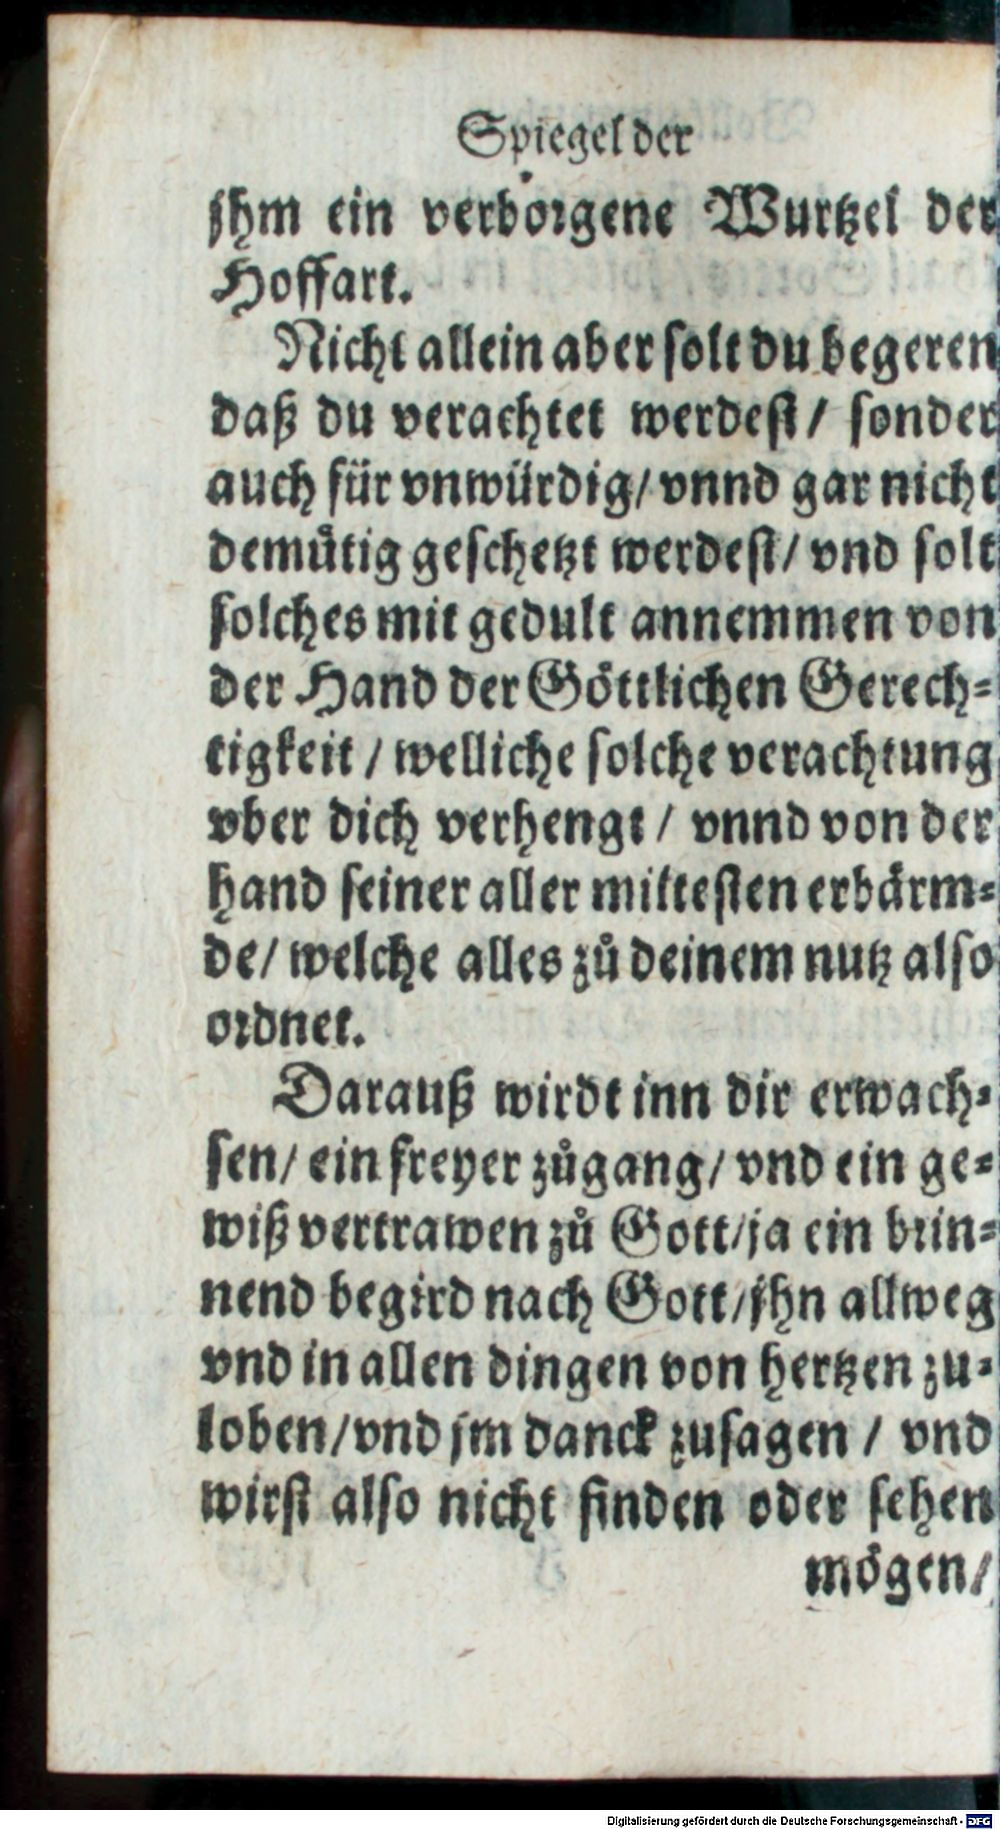 Spiegel der
jhm ein verborgene Wurtzel der
Hoffart.
Nicht allein aber solt du begeren
daß du verachtet werdest / sonder
auch für vnwürdig / vnnd gar nicht
demuͤtig geschetzt werdest / vnd solt
solches mit gedult annemmen von
der Hand der Göttlichen Gerech⸗
tigkeit / welliche solche verachtung
vber dich verhengt / vnnd von der
hand seiner aller miltesten erbärm⸗
de / welche alles zů deinem nutz also
ordnet.
Darauß wirdt inn dir erwach⸗
sen / ein freyer zůgang / vnd ein ge⸗
wiß vertrawen zů Gott / ja ein brin⸗
nend begird nach Gott / jhn allweg
vnd in allen dingen von hertzen zu⸗
loben / vnd jm danck zusagen / vnd
wirst also nicht finden oder sehen
mögen /
Digitalisierung gefördert durch die Deutsche Forschungsgemeinschaft - DFG